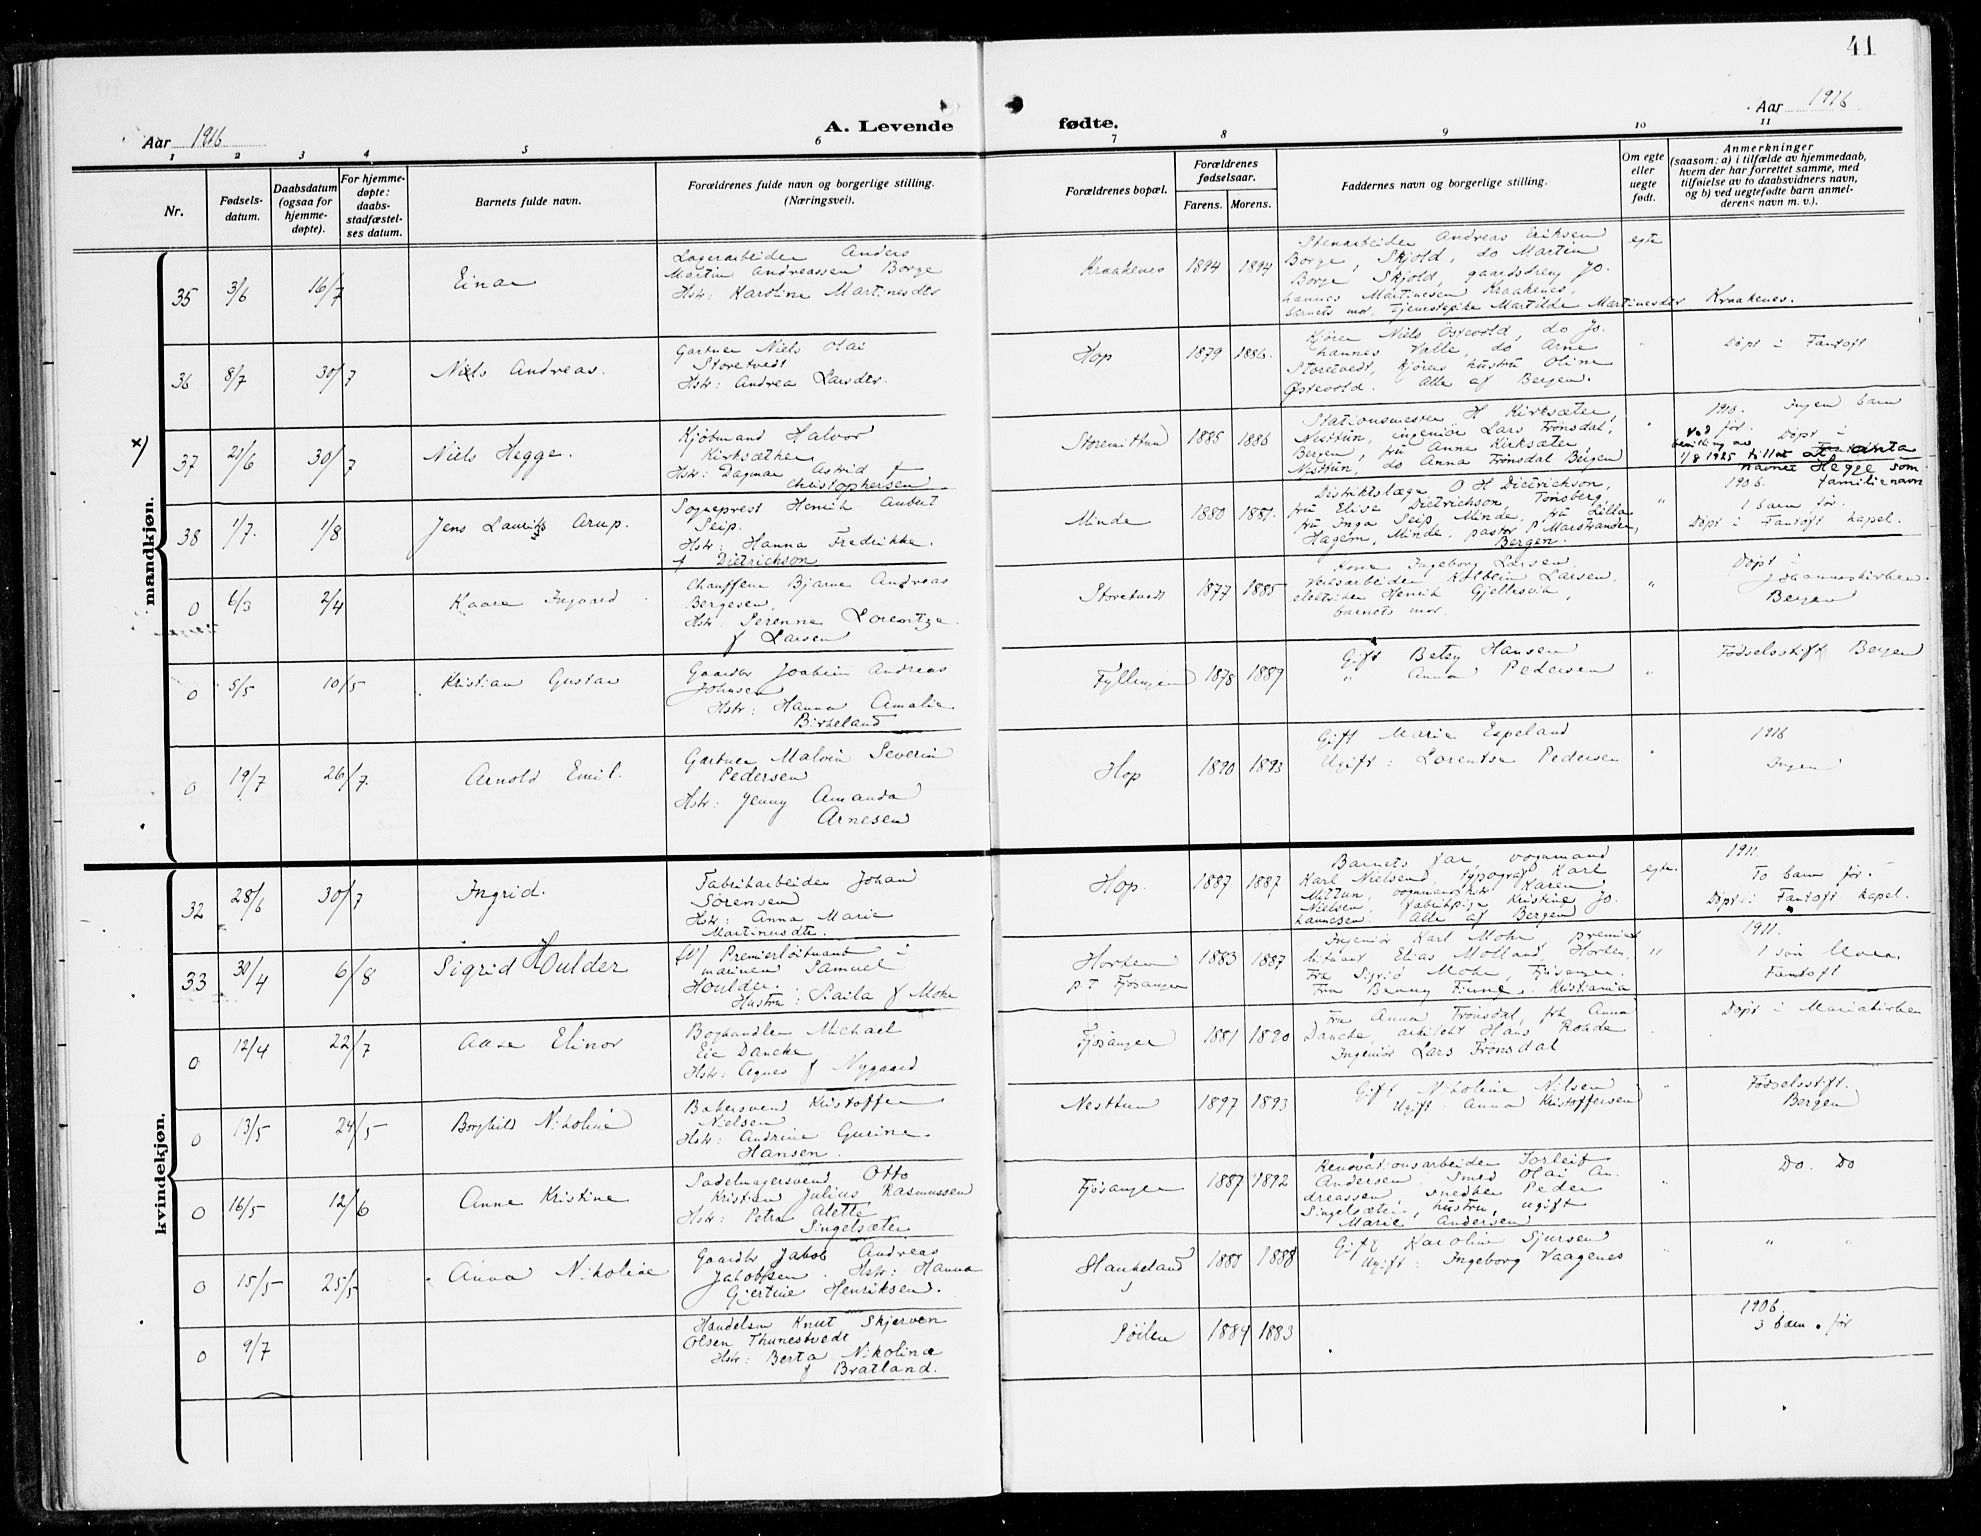 41
Aar 1916
A. Levende fødte.
Aar 1916
1 2 3 4 5 6 7 8 9 10 11
Nr.
Fødsels-
datum.
Daabsdatum
(ogsaa for
hjemme-
døpte).
For hjemme-
døpte:
daabs-
stadfæstel-
ses datum.
Barnets fulde navn.
Forældrenes fulde navn og borgerlige stilling.
(Næringsvei).
Forældrenes bopæl.
Forældrenes
fødselsaar.
Farens. Morens.
Faddernes navn og borgerlige stilling.
Om egte
eller
uegte
født.
Anmerkninger
(saasom: a) i tilfælde av hjemmedaab,
hvem der har forrettet samme, med
tilføielse av to daabsvidners navn,
og b) ved uegtefødte barn anmel-
derens navn m. v.).
mandkjøn.
35 3/6 16/7 Einar
Lagerarbeider Anders
Martin Andreassen Borge
Hstr: Karoline Martinesdtr
Kraakenes 1894 1894
Stenarbeider Andreas Eriksen
Borge, Skjold, do Martin
Borge, Skjold, gaardsdreng Jo.
hannes Martinesen Kraakenes,
barnets mor, tjenestepike Martilde Martinesdtr Kraakenes.
egte
36 8/7 30/7 Niels Andreas.
Gartner Niels Olai
Storetvedt
Hstr: Andrea Larsdtr.
Hop 1879 1886.
Kjører Niels Østevold, do Jo.
hannes Valle, do Arne
Storetvedt, kjørers hustru Oline
Østevold. Alle af Bergen.
"
Døpt i Fantoft
x)
37 21/6 30/7 Niels Hegge.
Kjøbmand Halvor
Kirksæther
Hstr: Dagmar Astrid f
Christophersen
Storemittun 1885 1886
Stationsmester H Kirksæter,
Nesttun, ingeniør Lars Trönsdal,
Bergen, fru Anne Kirksæter
Nesttun, do Anna Trönsdal Bergen
"
1910. Ingen barn
før. Døpt i
Ved
1/8 1925 tillat at anta
navnet Hegge som
familienavn
38 1/7. 1/8 Jens Laurits Arup.
Sogneprest Henrik Aubert
Seip.
Hstr: Hanna Fredrikke.
f Dietrichson
Minde 1880 1881.
Distriktslæge O H Dietrichson,
fru Elise Dietrichson, Tønsberg,
fru Inga Seip, Minde, fru Lilla
Hagem, Minde, pastor P Marstrander,
Bergen.
"
1906.
1 barn før.
Døpt i Fantoft kapel.
0 6/3 2/4 Kaare Ingvard
Chauffeur Bjarne Andreas
Bergesen,
Hstr: Serenne Lorentze.
f Larsen
Storetvedt 1877 1885
Kone Ingeborg Larsen,
Verksarbeider Kolbein Larsen,
elektriker Henrik Gjellesvik,
barnets mor.
"
Døpt i
Johanneskirken.
Bergen
0 5/5 10/5 Kristian Gustav
Gaardbr Joakim Andreas
Johnsen
Hstr: Hanna Amalie
Birkeland
Fyllingen 1878 1889
Gift Betsy Hansen
" Anna Pedersen
"
Fødselsstift Bergen
0 19/7 26/7. Arnold Emil.
Gartner Malvin Severin
Pedersen
Hstr: Jenny Amanda
Arnesen
Hop 1890 1893
Gift Marie Espeland
Ugift: Lorentse Pedersen
"
1916
Ingen
kvindekjøn.
32 28/6 30/7 Ingrid.
Fabrikarbeider Johan
Sørensen
Hstr: Anna Marie
Martinusdtr.
Hop. 1887 1887
Barnets far, vognmand
Karl Nielsen, typograf Karl
Mittun, vognmands hstr Karen
Nielsen, fabrikpige Kristine Jo.
hannesen. Alle af Bergen
egte.
1911.
To barn før.
Døpt i Fantoft kapel.
33 30/4 6/8 Sigrid Houlder
Premierløitnant i
marinen Samuel
Houlder.
Hustru: Laila f Mohr
Horten
p.T Fjøsanger
1883 1887
Ingeniør Karl Mohr, premier
løitnant Elias Molland, Horten,
Fru Sigrid Mohr, Fjøsanger.
Fru Benny Finne, Kristiania
"
1911.
1 søn
Fantoft
0 12/4 22/7 Aase Elinor
Boghandler Michael
Eie Dancke
Hstr: Agnes f Nygaard
Fjøsanger 1881 1890
Fru Anna Trönsdal, frk Anna
Dancke, arkitekt Hans Rohde
Ingeniør Lars Trønsdal
Døpt i Mariakirken
0 13/5 24/5 Borghild Nikoline
Bakersvend Kristoffer
Nielsen
Hstr: Andrine Gurine.
Hansen.
Nesttun 1897 1893
Gift Nikoline Nilsen
Ugift: Anna Kristoffersen
"
Fødselsstift.
Bergen
0 16/5 12/6 Anne Kristine
Sadelmagersvend Otto
Kristian Julius Rasmussen
Hstr: Petra Alette
Singelsæter
Fjøsanger 1887 1892
Renovationsarbeider Torleif
Andersen. Smed Olai An.
dreassen, snedker Peder
Singelsæter, hustru, ugift
Marie Andersen
Do. Do
0 15/5 25/5 Anna Nikoline
Gaardbr Jakob Andreas
Jakobsen. Hstr: Hanna
Gjertine Henriksen.
Haukeland 1888 1888
Gift Karoline Sjursen
Ugift: Ingeborg Vaagenes
" " "
0 9/7
Handelsm Knut Skjerven
Olsen Thunestvedt
Hstr: Berta Nikolina
f Bratland.
Søilen 1884 1883
1906.
3 barn. før